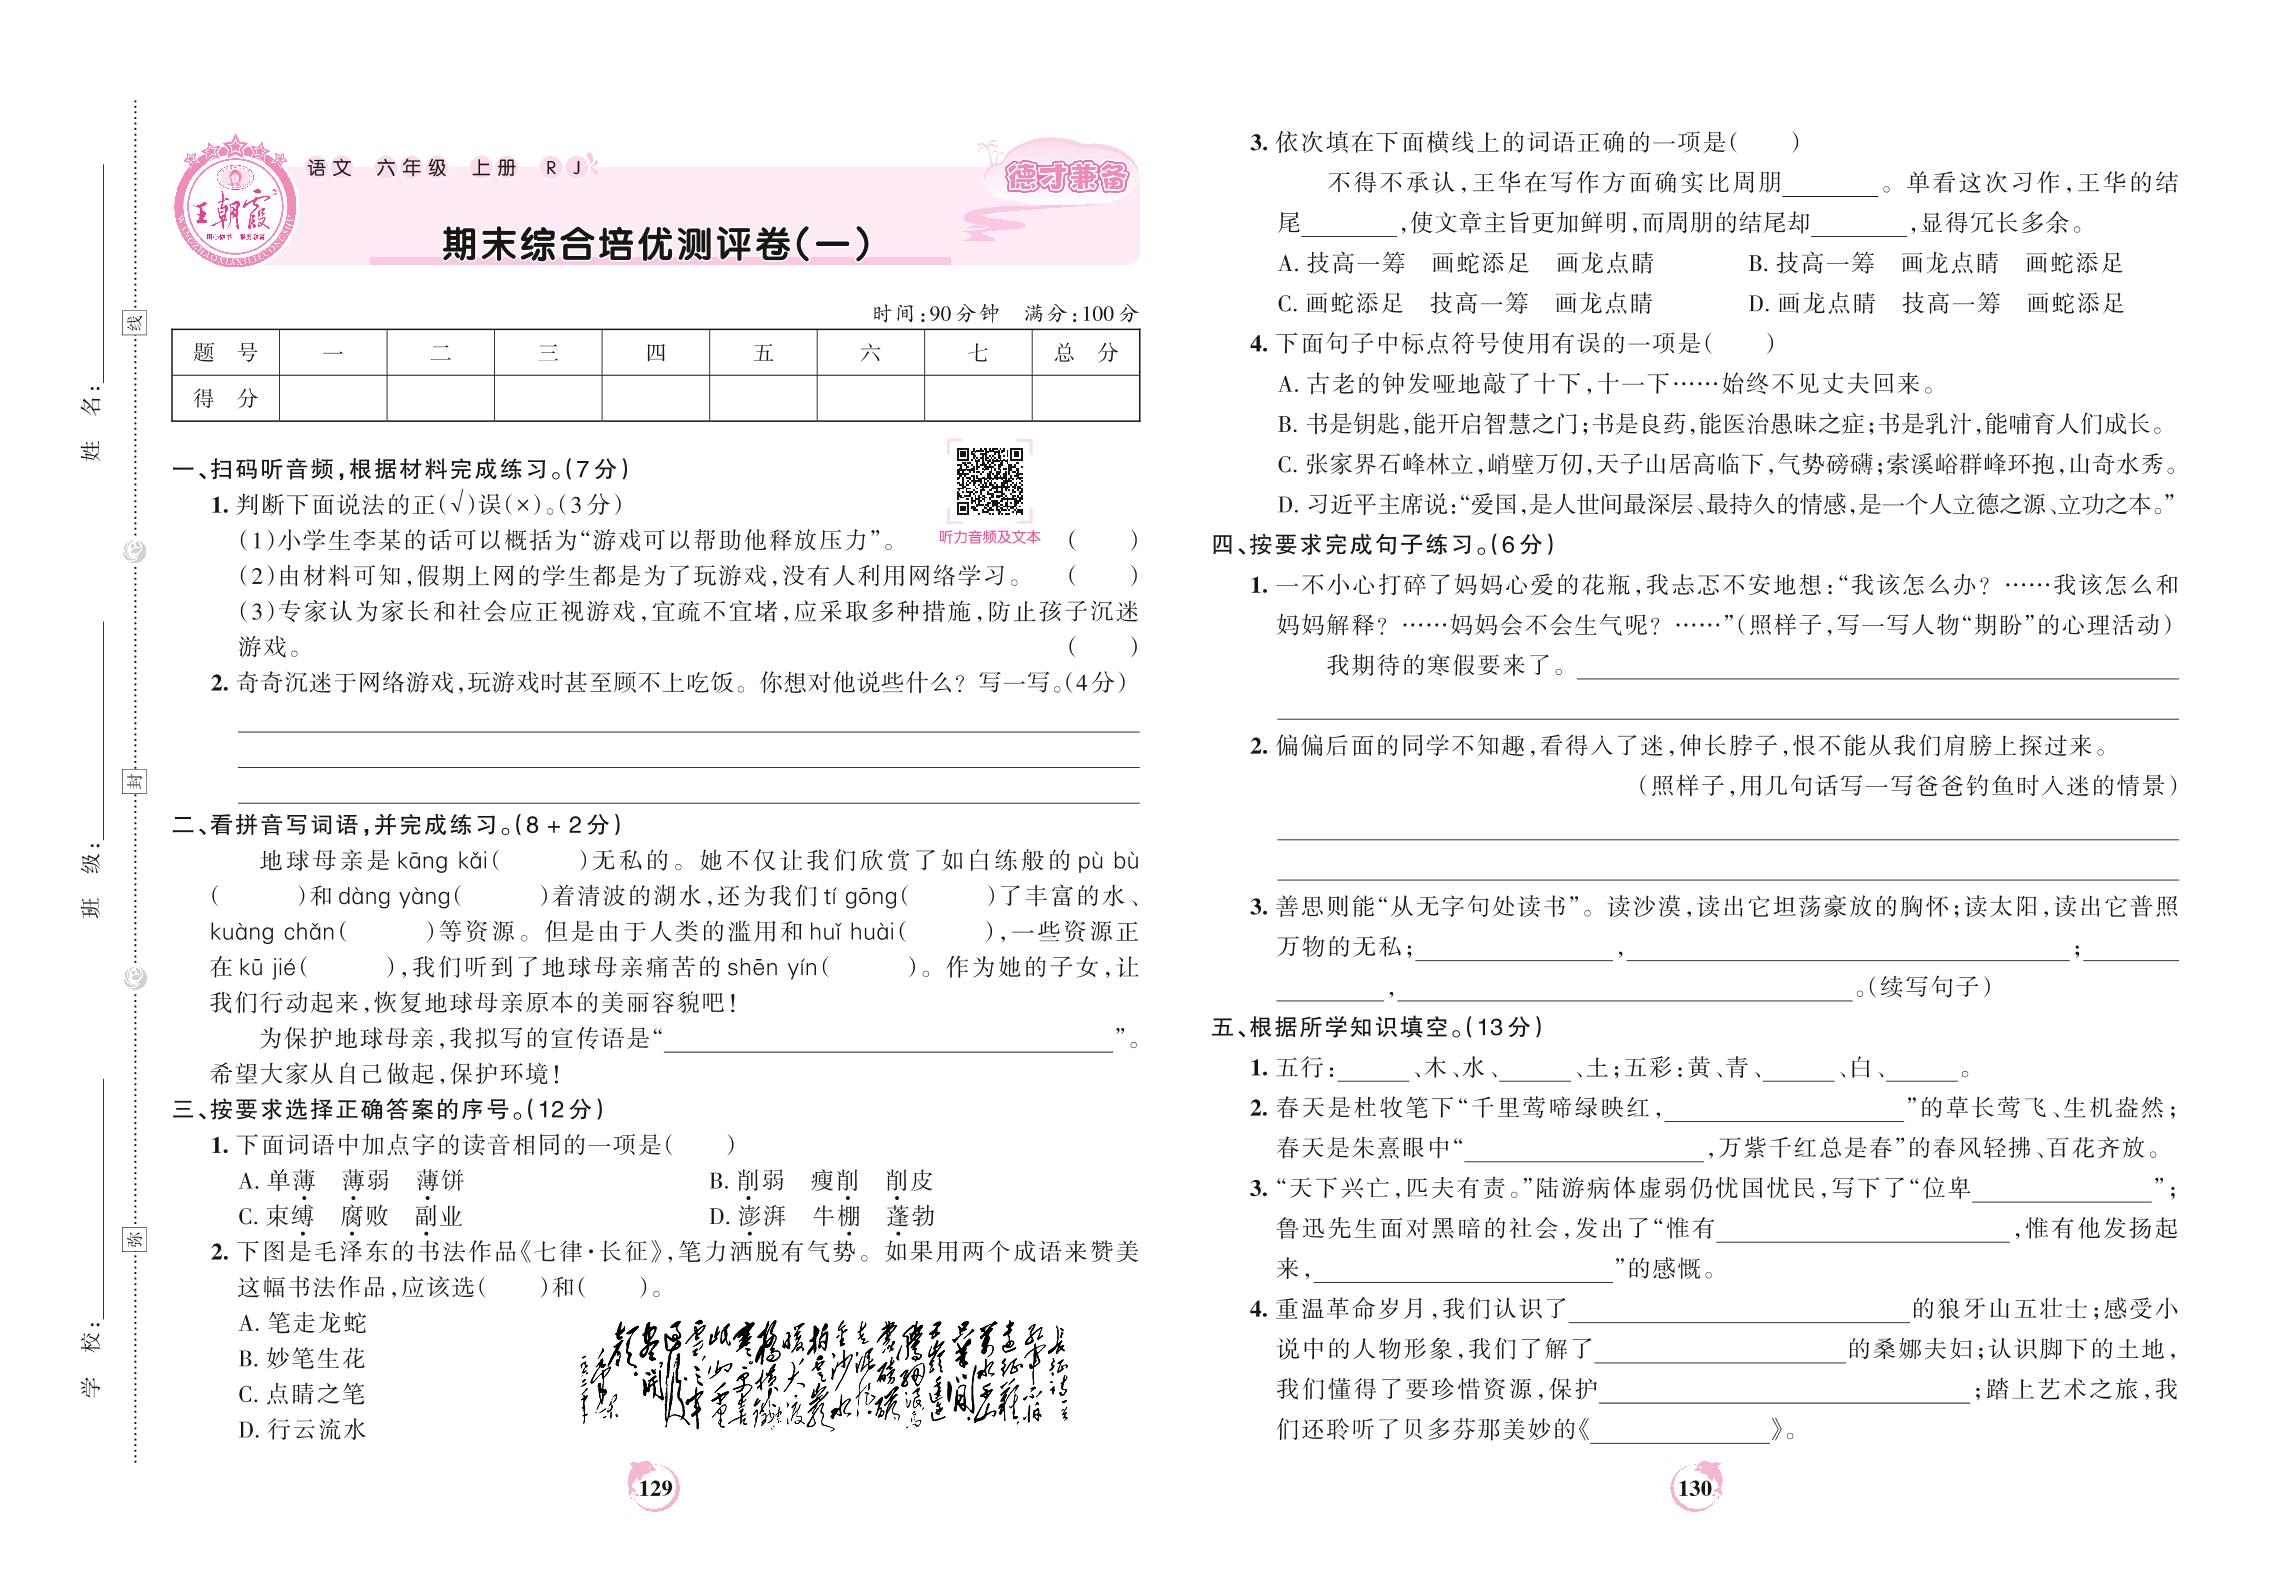 学 校:
班 级:
姓 名:
弥
封
线
王朝霞
语文 六年级 上册 RJ
德才兼备
期末综合培优测评卷(一)
时间:90分钟 满分:100分
题 号 一 二 三 四 五 六 七 总 分
得 分
一、扫码听音频,根据材料完成练习。(7分)
听力音频及文本
1. 判断下面说法的正(√)误(×)。(3分)
(1)小学生李某的话可以概括为“游戏可以帮助他释放压力”。 ( )
(2)由材料可知,假期上网的学生都是为了玩游戏,没有人利用网络学习。 ( )
(3)专家认为家长和社会应正视游戏,宜疏不宜堵,应采取多种措施,防止孩子沉迷
游戏。 ( )
2. 奇奇沉迷于网络游戏,玩游戏时甚至顾不上吃饭。你想对他说些什么?写一写。(4分)
二、看拼音写词语,并完成练习。(8+2分)
地球母亲是 kāng kǎi( )无私的。她不仅让我们欣赏了如白练般的 pù bù
( )和 dàng yàng( )着清波的湖水,还为我们 tí gōng( )了丰富的水、
kuàng chǎn( )等资源。但是由于人类的滥用和 huǐ huài( ),一些资源正
在 kū jié( ),我们听到了地球母亲痛苦的 shēn yín( )。作为她的子女,让
我们行动起来,恢复地球母亲原本的美丽容貌吧!
为保护地球母亲,我拟写的宣传语是“________”。
希望大家从自己做起,保护环境!
三、按要求选择正确答案的序号。(12分)
1. 下面词语中加点字的读音相同的一项是( )
A. 单薄 薄弱 薄饼 B. 削弱 瘦削 削皮
C. 束缚 腐败 副业 D. 澎湃 牛棚 蓬勃
2. 下图是毛泽东的书法作品《七律·长征》,笔力洒脱有气势。如果用两个成语来赞美
这幅书法作品,应该选( )和( )。
A. 笔走龙蛇
B. 妙笔生花
C. 点睛之笔
D. 行云流水
129
3. 依次填在下面横线上的词语正确的一项是( )
不得不承认,王华在写作方面确实比周朋________。单看这次习作,王华的结
尾________,使文章主旨更加鲜明,而周朋的结尾却________,显得冗长多余。
A. 技高一筹 画蛇添足 画龙点睛 B. 技高一筹 画龙点睛 画蛇添足
C. 画蛇添足 技高一筹 画龙点睛 D. 画龙点睛 技高一筹 画蛇添足
4. 下面句子中标点符号使用有误的一项是( )
A. 古老的钟发哑地敲了十下,十一下……始终不见丈夫回来。
B. 书是钥匙,能开启智慧之门;书是良药,能医治愚昧之症;书是乳汁,能哺育人们成长。
C. 张家界石峰林立,峭壁万仞,天子山居高临下,气势磅礴;索溪峪群峰环抱,山奇水秀。
D. 习近平主席说:“爱国,是人世间最深层、最持久的情感,是一个人立德之源、立功之本。”
四、按要求完成句子练习。(6分)
1. 一不小心打碎了妈妈心爱的花瓶,我忐忑不安地想:“我该怎么办?……我该怎么和
妈妈解释?……妈妈会不会生气呢?……”(照样子,写一写人物“期盼”的心理活动)
我期待的寒假要来了。________
2. 偏偏后面的同学不知趣,看得入了迷,伸长脖子,恨不能从我们肩膀上探过来。
(照样子,用几句话写一写爸爸钓鱼时入迷的情景)
3. 善思则能“从无字句处读书”。读沙漠,读出它坦荡豪放的胸怀;读太阳,读出它普照
万物的无私;________,________;________
________,________。(续写句子)
五、根据所学知识填空。(13分)
1. 五行:______、木、水、______、土;五彩:黄、青、______、白、______。
2. 春天是杜牧笔下“千里莺啼绿映红,________”的草长莺飞、生机盎然;
春天是朱熹眼中“________,万紫千红总是春”的春风轻拂、百花齐放。
3. “天下兴亡,匹夫有责。”陆游病体虚弱仍忧国忧民,写下了“位卑________”;
鲁迅先生面对黑暗的社会,发出了“惟有________,惟有他发扬起
来,________”的感慨。
4. 重温革命岁月,我们认识了________的狼牙山五壮士;感受小
说中的人物形象,我们了解了________的桑娜夫妇;认识脚下的土地,
我们懂得了要珍惜资源,保护________;踏上艺术之旅,我
们还聆听了贝多芬那美妙的《________》。
130